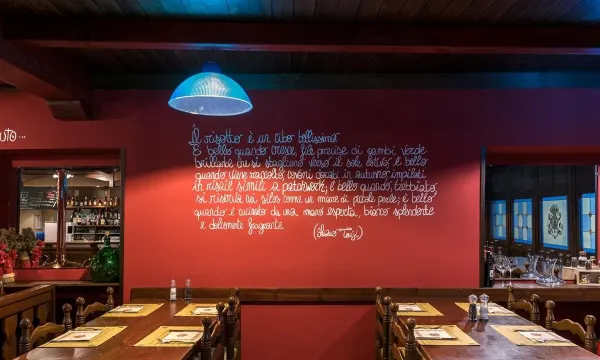 uto...
Il risotto è un cibo bellissimo
È bello quando cresce, file precise di gambi verde
brillante che si stagliano verso il sole estivo; è bello
quando viene raccolto, covoni dorati in autunno impilati
in risaie simili a patchwork; è bello quando, trebbiato,
si riversa nei silos come un mare di piccole perle; è bello
quando è cucinato da una mano esperta, bianco splendente
e dolcemente fragrante.